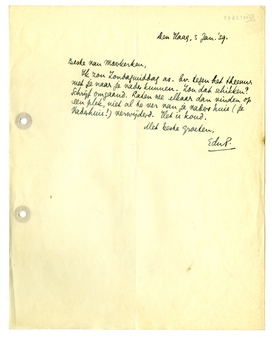 Den Haag, 5 Jan. '29.
Beste van Mastenken,
Ik zou Zondagmiddag as. tegen het theeuur
met je naar je vader kunnen. Zou dat schikken?
Schrijf omgaand. Laten we elkaar dan vinden op
een plek, niet al te ver van je vaders huis (je
Vadershuis!) verwijderd. Het is koud.
Met beste groeten,
EduP.